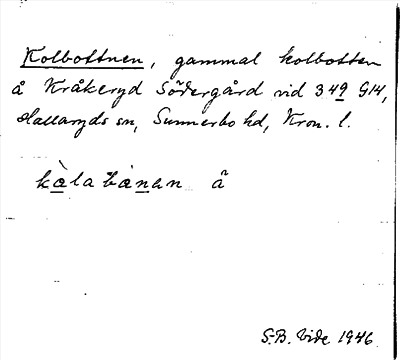 Kolbottnen, gammal kolbotten
å Kråkeryd Södergård vid 349 G14,
Hallaryds sn, Sunnerbo hd, Kron. l.
å
S-B. Vide 1946